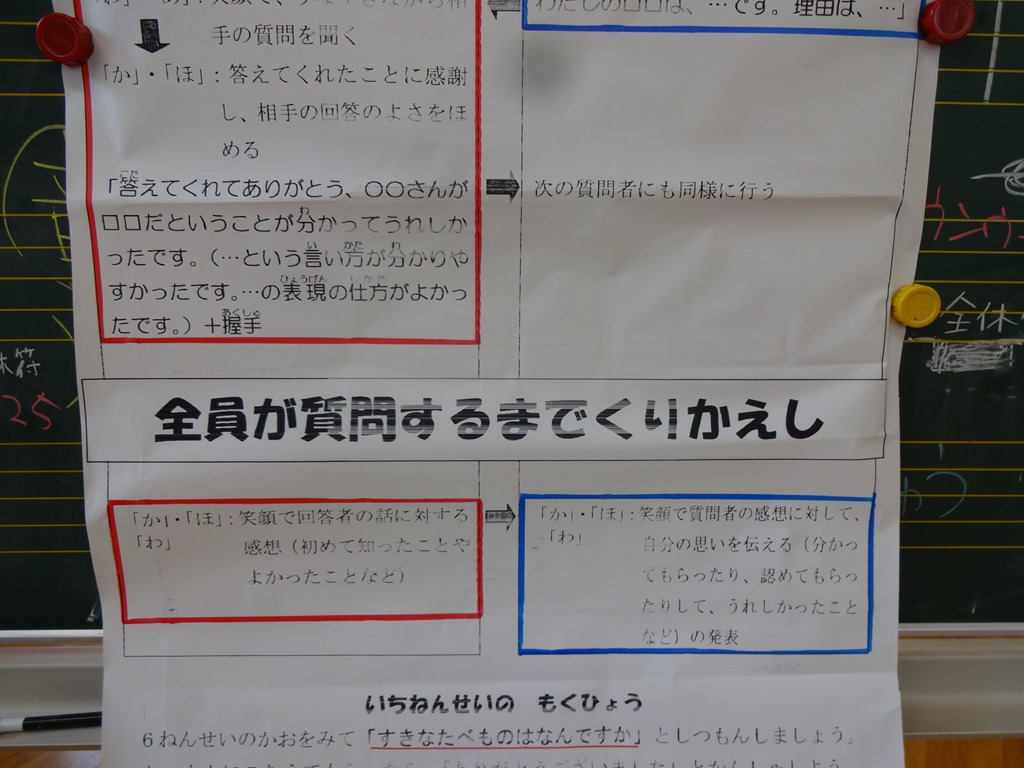 手の質問を聞く
「か」・「ほ」：答えてくれたことに感謝
し、相手の回答のよさをほ
める
「答えてくれてありがとう、〇〇さんが
□□だということが分かってうれしか
ったです。（…という言い方が分かりや
すかったです。…の表現の仕方がよかっ
たです。）＋握手
わたしの□□は、…です。理由は、…」
次の質問者にも同様に行う
全員が質問するまでくりかえし
「か」・「ほ」：笑顔で回答者の話に対する
「わ」 感想（初めて知ったことや
よかったことなど）
「か」・「ほ」：笑顔で質問者の感想に対して、
「わ」 自分の思いを伝える（分かっ
てもらったり、認めてもらっ
たりして、うれしかったこと
など）の発表
いちねんせいの もくひょう
６ねんせいのかおをみて「すきなたべものはなんですか」としつもんしましょう。
休符
25
全休